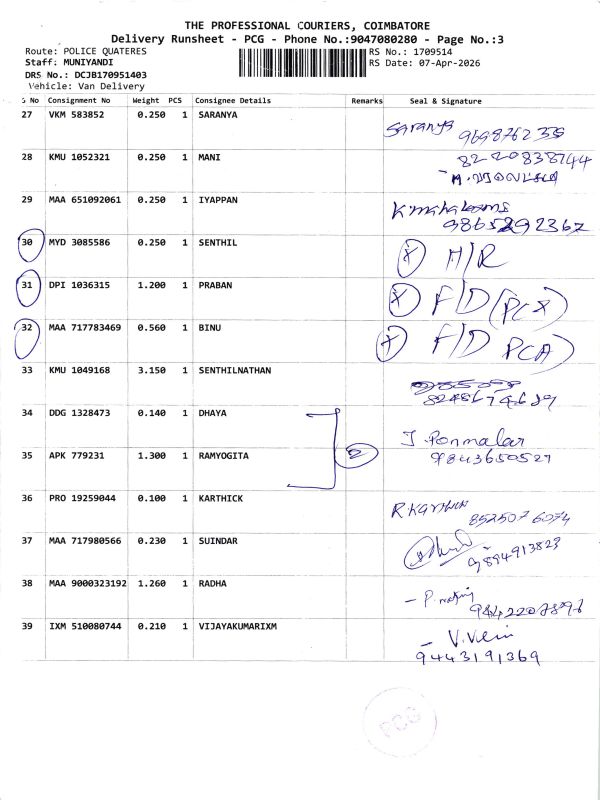 THE PROFESSIONAL COURIERS, COIMBATORE
Delivery Runsheet - PCG - Phone No.:9047080280 - Page No.:3
Route: POLICE QUATERES
Staff: MUNIYANDI
DRS No.: DCJB170951403
Vehicle: Van Delivery
RS No.: 1709514
RS Date: 07-Apr-2026
No Consignment No Weight PCS Consignee Details Remarks Seal & Signature
27 VKM 583852 0.250 1 SARANYA Saranya
28 KMU 1052321 0.250 1 MANI
29 MAA 651092061 0.250 1 IYAPPAN
9865292367
30 MYD 3085586 0.250 1 SENTHIL X
31 DPI 1036315 1.200 1 PRABAN X F/D
32 MAA 717783469 0.560 1 BINU X F/D PCA)
33 KMU 1049168 3.150 1 SENTHILNATHAN
34 DDG 1328473 0.140 1 DHAYA J. Ponmalar
35 APK 779231 1.300 1 RAMYOGITA 2 9843650527
36 PRO 19259044 0.100 1 KARTHICK
8525076074
37 MAA 717980566 0.230 1 SUINDAR
9894913823
38 MAA 9000323192 1.260 1 RADHA
39 IXM 510080744 0.210 1 VIJAYAKUMARIXM
9443191369
PCG